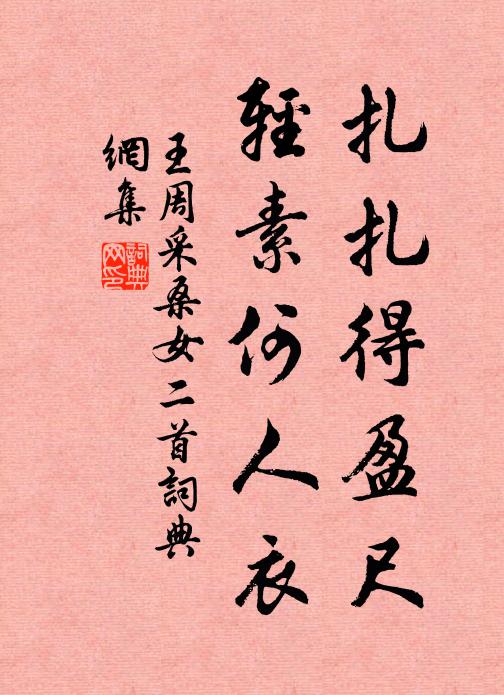 扎扎得盈尺
輕素何人衣
王周采桑女二首詞典
網集
詞典網印